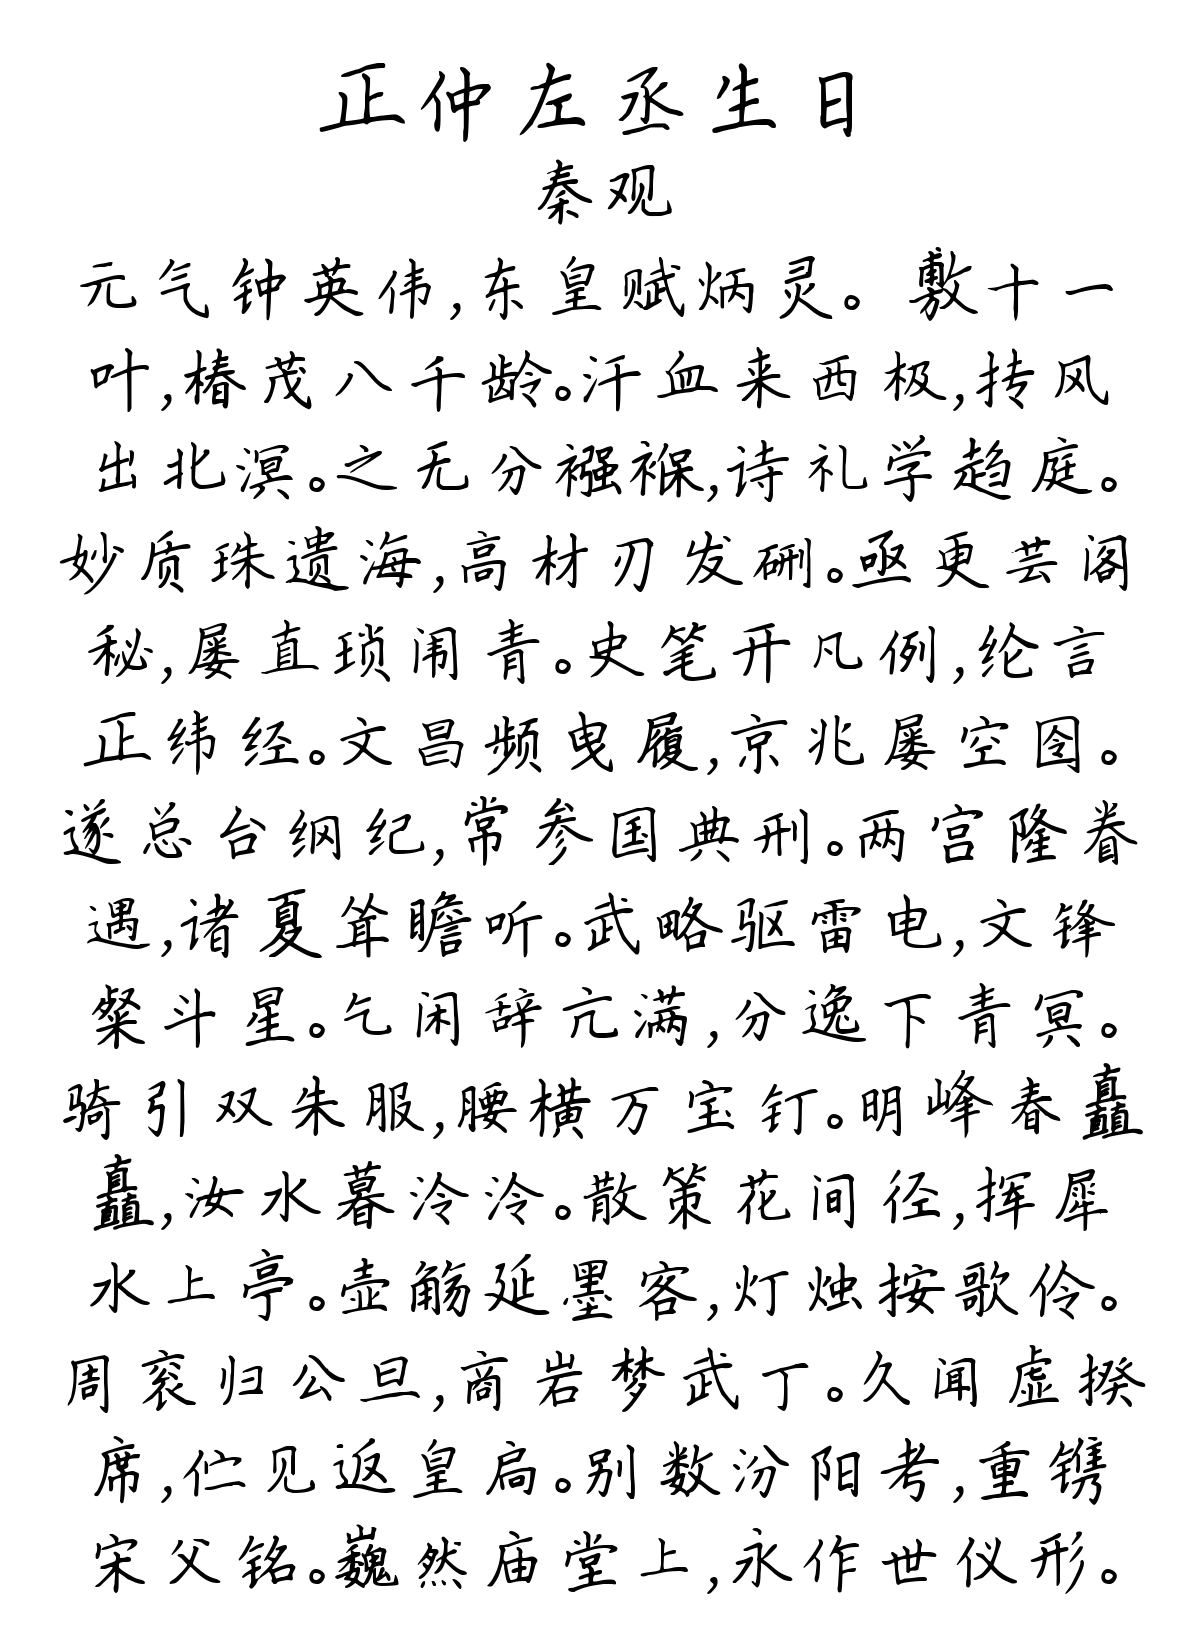 正仲左丞生日
秦观
元气钟英伟,东皇赋炳灵。蓂敷十一
叶,椿茂八千龄。汗血来西极,抟风
出北溟。之无分襁褓,诗礼学趋庭。
妙质珠遗海,高材刃发硎。亟更芸阁
秘,屡直琐闱青。史笔开凡例,纶言
正纬经。文昌频曳履,京兆屡空囹。
遂总台纲纪,常参国典刑。两宫隆眷
遇,诸夏耸瞻听。武略驱雷电,文锋
粲斗星。乞闲辞亢满,分逸下青冥。
骑引双朱服,腰横万宝钉。明峰春矗
矗,汝水暮泠泠。散策花间径,挥犀
水上亭。壶觞延墨客,灯烛按歌伶。
周衮归公旦,商岩梦武丁。久闻虚揆
席,伫见返皇扃。别数汾阳考,重镌
宋父铭。巍然庙堂上,永作世仪形。